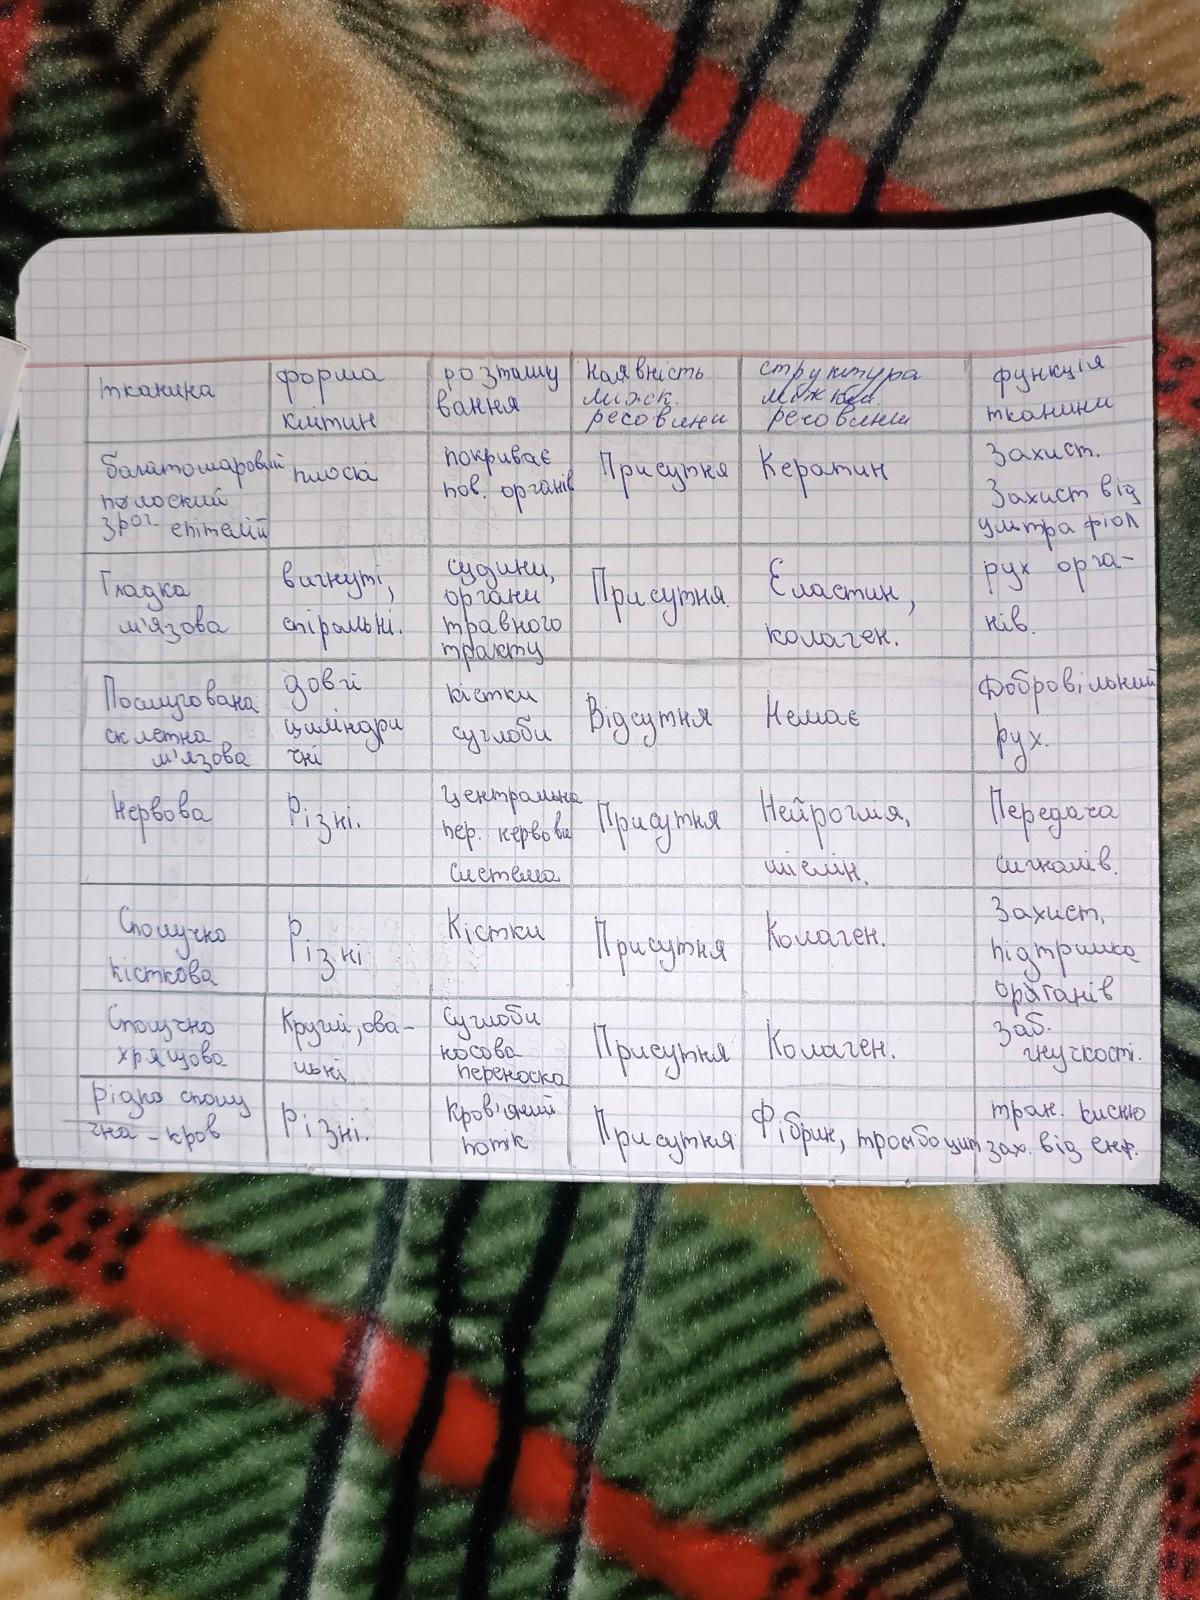 тканина
форма
клітин
розташу
вання
наявність
міжк.
речовини
структура
міжкл.
речовини
функція
тканини
багатошаровий
плоский
зрог. епітелій
плоска
покриває
пов. органів
Присутня
Кератин
Захист.
Захист від
ультра фіол
Гладка
м'язова
вигнуті,
спіральні.
судини,
органи
травного
тракту
Присутня.
Еластин,
колаген.
рух орга-
нів.
Посмугована
склетна
м'язова
довгі
циліндри
чні
кістки
суглоби
Відсутня
Немає
Добровільний
рух.
Нервова
Різні.
Центральна
пер. нервова
система
Присутня
Нейроглія,
мієлін.
Передача
сигналів.
Сполучно
кісткова
Різні
Кістки
Присутня
Колаген.
Захист,
підтримка
органів
Сполучно
хрящова
Круглі, ова-
льні
Суглоби
носова
переноска
Присутня
Колаген.
Заб.
гнучкості.
Рідка сполу
чна - кров
Різні.
Кров'яний
потік
Присутня
Фібрин, тромбоцит
тран. кисню
зах. від енф.